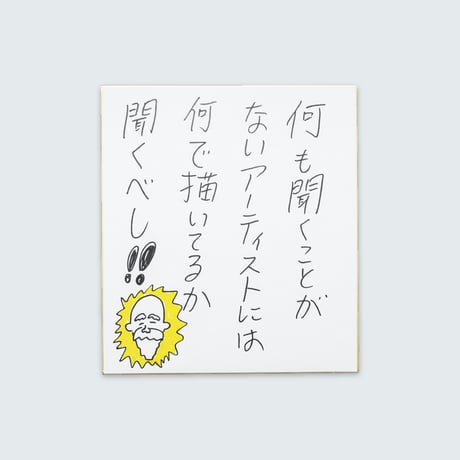 何も聞くことが
ないアーティストには
何で描いてるか
聞くべし!!